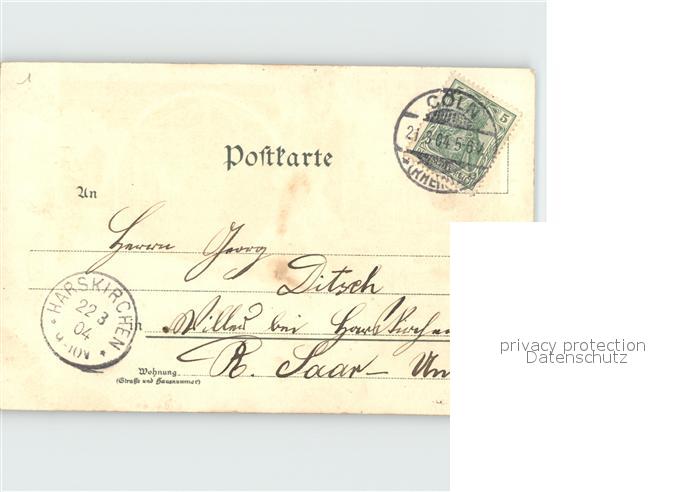 1
Postkarte
CÖLN
21.3.04. 5-6
* (RHEIN)
5
An
Herrn Georg
Ditsch
HARSKIRCHEN
22 3
04
in
bei Harskirchen
Wohnung
(Straße und Hausnummer)
R. Saar- Un
privacy protection
Datenschutz